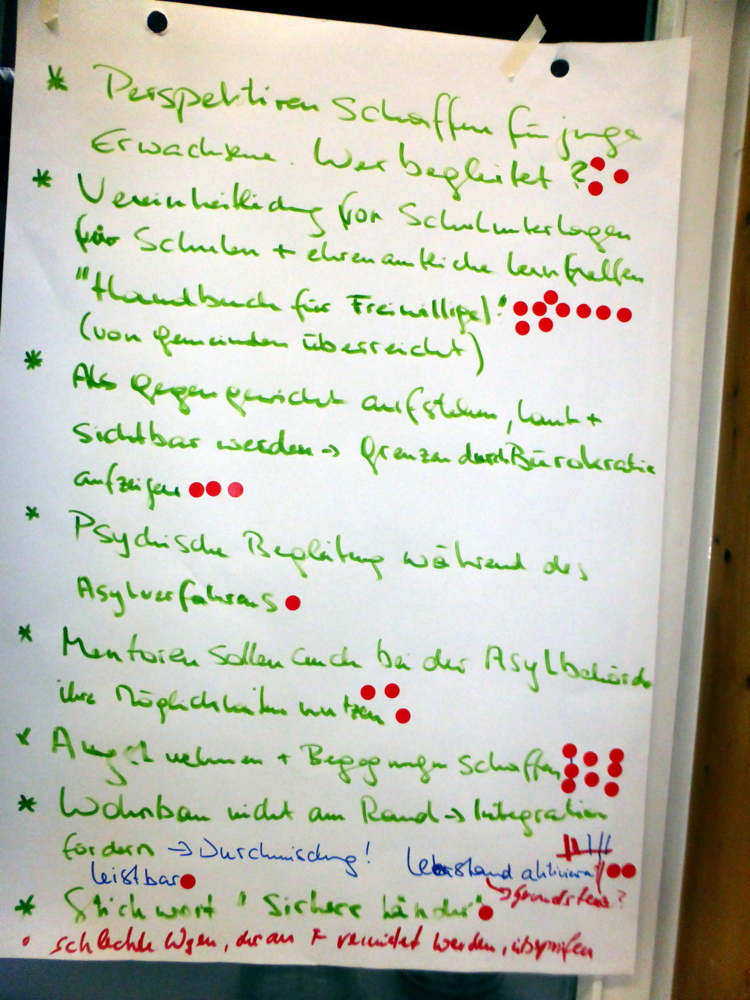 * Perspektiven schaffen für junge
Erwachsene. Wer begleitet?
* Vereinheitlichung von Schulunterlagen
für Schulen + ehrenamtliche Lernhelfer
"Handbuch für Freiwillige!"
(von Gemeinden überreicht)
* Als Gegengewicht aufstehen, laut +
sichtbar werden → Grenzen durch Bürokratie
aufzeigen
* Psychische Begleitung während des
Asylverfahrens
* Mentoren sollen auch bei der Asylbehörde
ihre Möglichkeiten nutzen
* Angst nehmen + Begegnungen schaffen
* Wohnbau nicht am Rand → Integration
fördern → Durchmischung! Leerstand aktivieren
leistbar → Grundsteuer?
* Stichwort "Sichere Länder"
schlechte Wgen, die an F vermietet werden, überprüfen